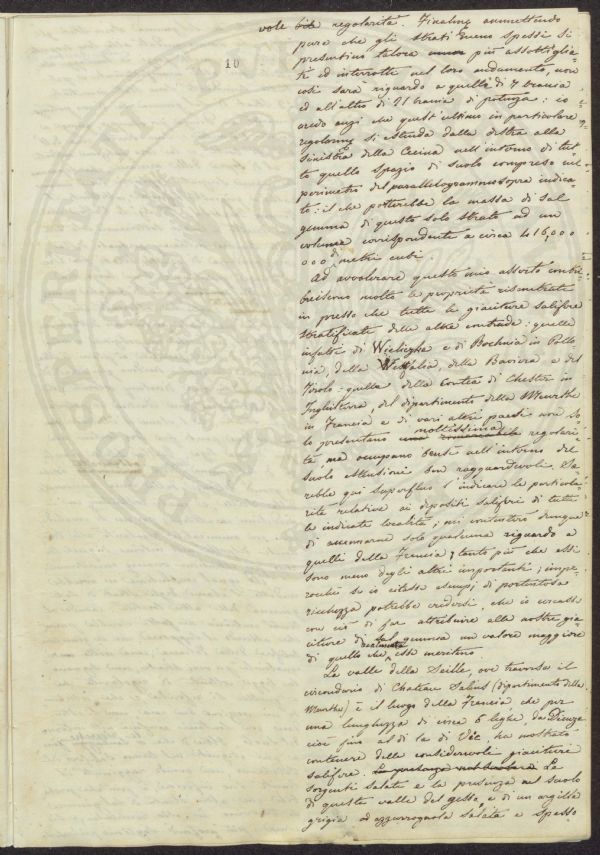 10
vole regolarità. Finalme ammettendo
pure che gli strati [stessi] spessi si
presentino talora più assottiglia=
ti ed interrotti nel loro andamento, non
così sarà riguardo a quello di 7 braccia
ed all'altro di 21 braccia di potenza: io
credo anzi che quest'ultimo in particolare
regolarme si estenda dalla destra alla
sinistra della Cecina nell'interno di tut=
to quello spazio di suolo compreso nel
perimetro del parallelogrammo sopra indica=
to: il che porterebbe la massa di sal
gemma di questo solo strato ad un
volume corrispondente a circa 416,000
000 di metri cubi.
Ad avvalorare questo mio asserto contri=
buiscono molto le proprietà riscontrate
in presso che tutte le giaciture salifere
stratificate delle altre contrade: quelle
infatti di Wieliczka e di Bochnia in Pollo
nia, della Westfalia, della Baviera e del
Tirolo: quella della Contea di Chester in
Inghilterra, del dipartimento della Meurthe
in Francia e di vari altri paesi non so=
lo presentano moltissima regolari=
tà ma occupano bensì nell'interno del
suolo estensioni ben ragguardevoli. Sa=
rebbe qui superfluo l'indicare le particola=
rità relative ai depositi saliferi di tutte
le indicate località; mi contenterò dunque
di accennarne solo qualcuna riguardo a
quelli della Francia, tanto più che essi
sono meno degli altri importanti; impe=
rochè se io citassi esempi di portentosa
ricchezza potrebbe credersi, che io cercassi
con ciò di far attribuire alle nostre gia=
citure di sal gemma un valore maggiore
di quello che realmente esse meritino.
La valle della Seille, ove traversa il
circondario di Chateau Salins (dipartimento della
Meurthe) è il luogo della Francia, che per
una lunghezza di circa 6 leghe, da Dieuze
cioè fino al di là di Vic, ha mostrato
contenere delle considerevoli giaciture
salifere. Le
sorgenti salate e la presenza nel suolo
di questa valle del gesso, e di un argilla
grigia ed azzurrognola salata e spesso